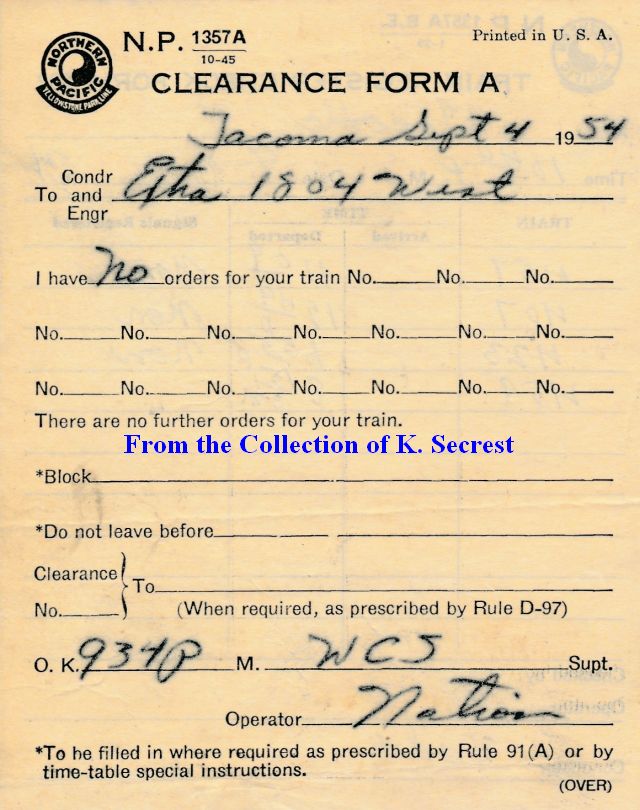 NORTHERN PACIFIC
YELLOWSTONE PARK LINE
N.P. 1357A
10-45
Printed in U. S. A.
CLEARANCE FORM A
Tacoma Sept 4 1954
Condr
To and Extra 1804 West
Engr
I have no orders for your train No. No. No.
No. No. No. No. No. No. No.
No. No. No. No. No. No. No.
There are no further orders for your train.
From the Collection of K. Secrest
*Block
*Do not leave before
Clearance
To
No. (When required, as prescribed by Rule D-97)
O. K. 934P M. WCS Supt.
Operator Nation
*To be filled in where required as prescribed by Rule 91(A) or by
time-table special instructions.
(OVER)